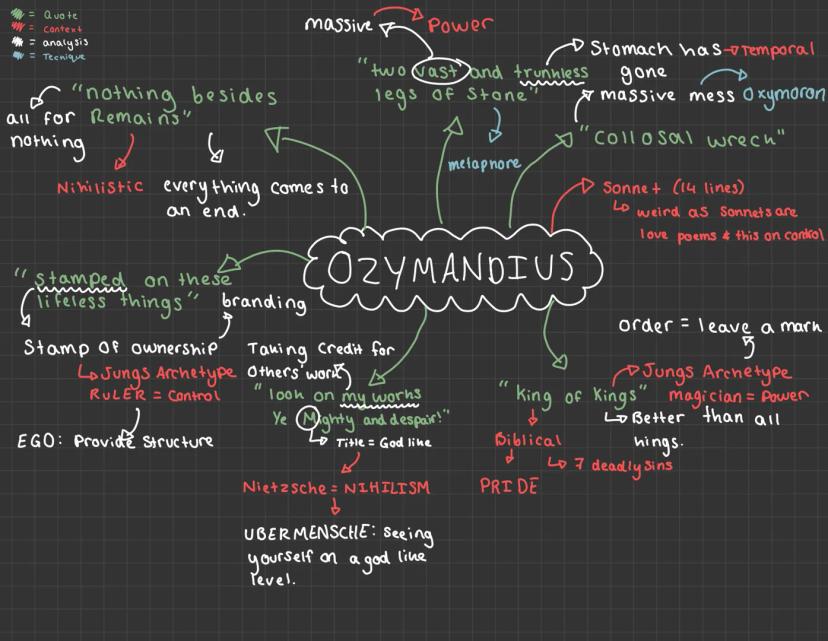 = Quote
= Context
= analysis
= Tecnique
massive
Power
"two vast and trunkless
legs of Stone"
metaphore
Stomach has
gone
Temporal
massive mess
Oxymoron
"Collosal wreck"
"nothing besides
Remains"
all for
nothing
Nihilistic
everything comes to
an end.
Sonnet (14 lines)
weird as Sonnets are
love poems & this on control
OZYMANDIUS
"Stamped on these
lifeless things"
branding
Stamp of ownership
Jungs Archetype
RULER = Control
EGO: Provide Structure
Taking Credit for
Others' work
"look on my works
Ye Mighty and despair!"
Title = God like
Nietzsche = NIHILISM
UBERMENSCHE: Seeing
yourself on a god like
level.
order = leave a mark
"King of Kings"
Jungs Archetype
magician = Power
Better than all
kings.
Biblical
7 deadly sins
PRIDE